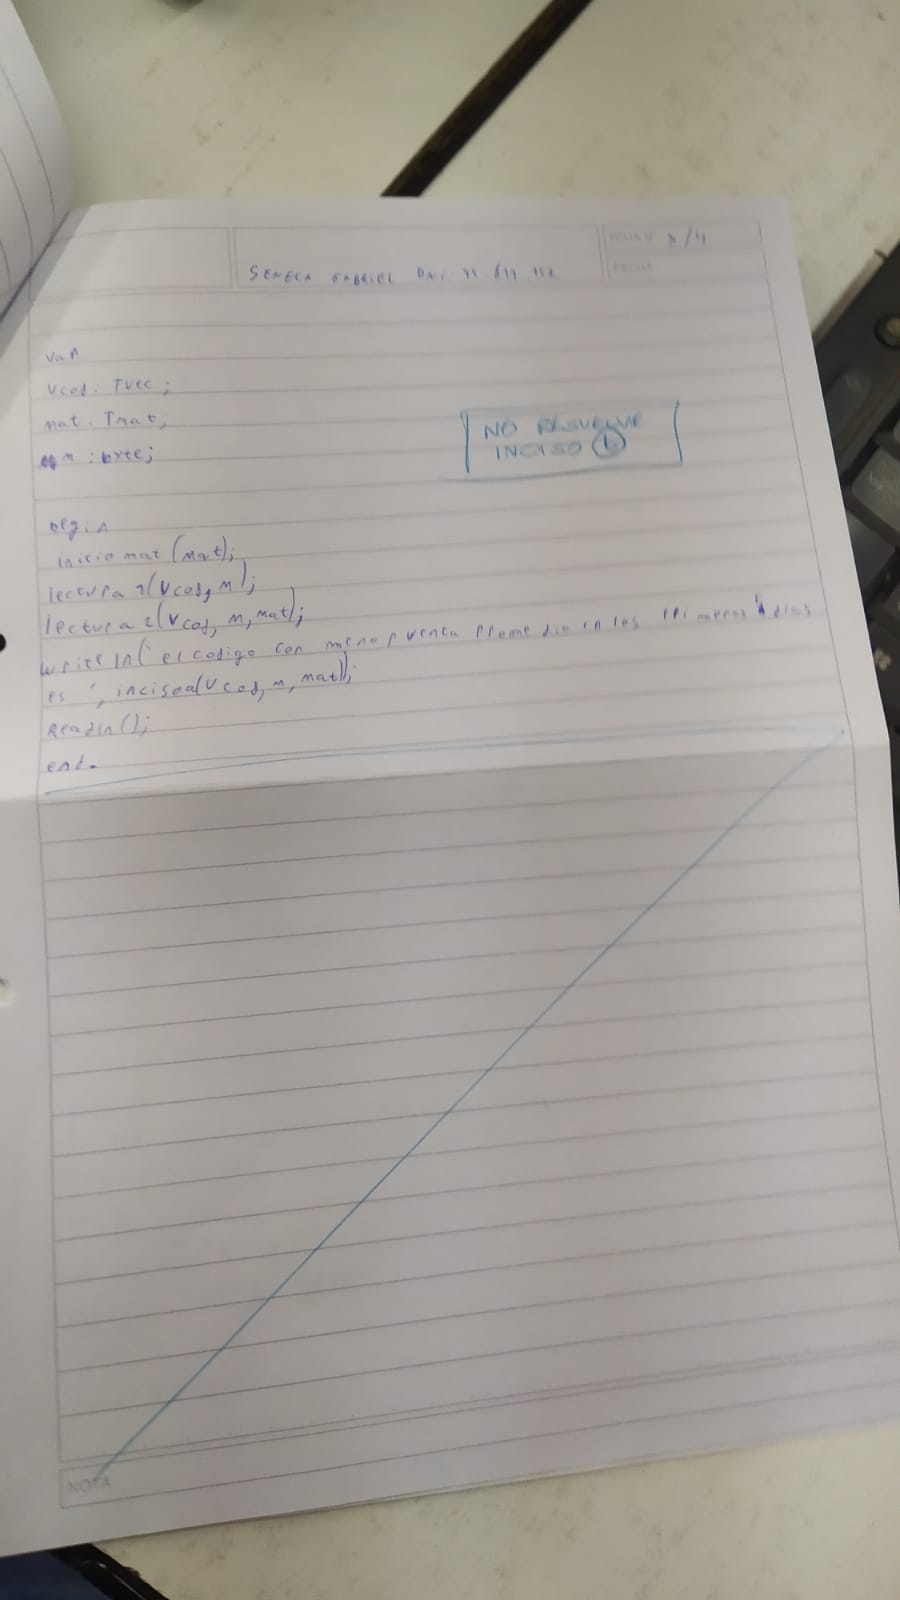 HOJA Nº 3/4
SENECA GABRIEL DNI.
FECHA
var
vcod: TVec;
mat: Tmat;
m: byte;
NO RESUELVE
INCISO b
begin
inicio mat (mat);
lectura 1(vcod, m);
lectura 2(vcod, m, mat);
writeln('el codigo con menor venta promedio en los primeros dias
es ', incisoa(vcod, m, mat));
Readln();
end.
NOTA